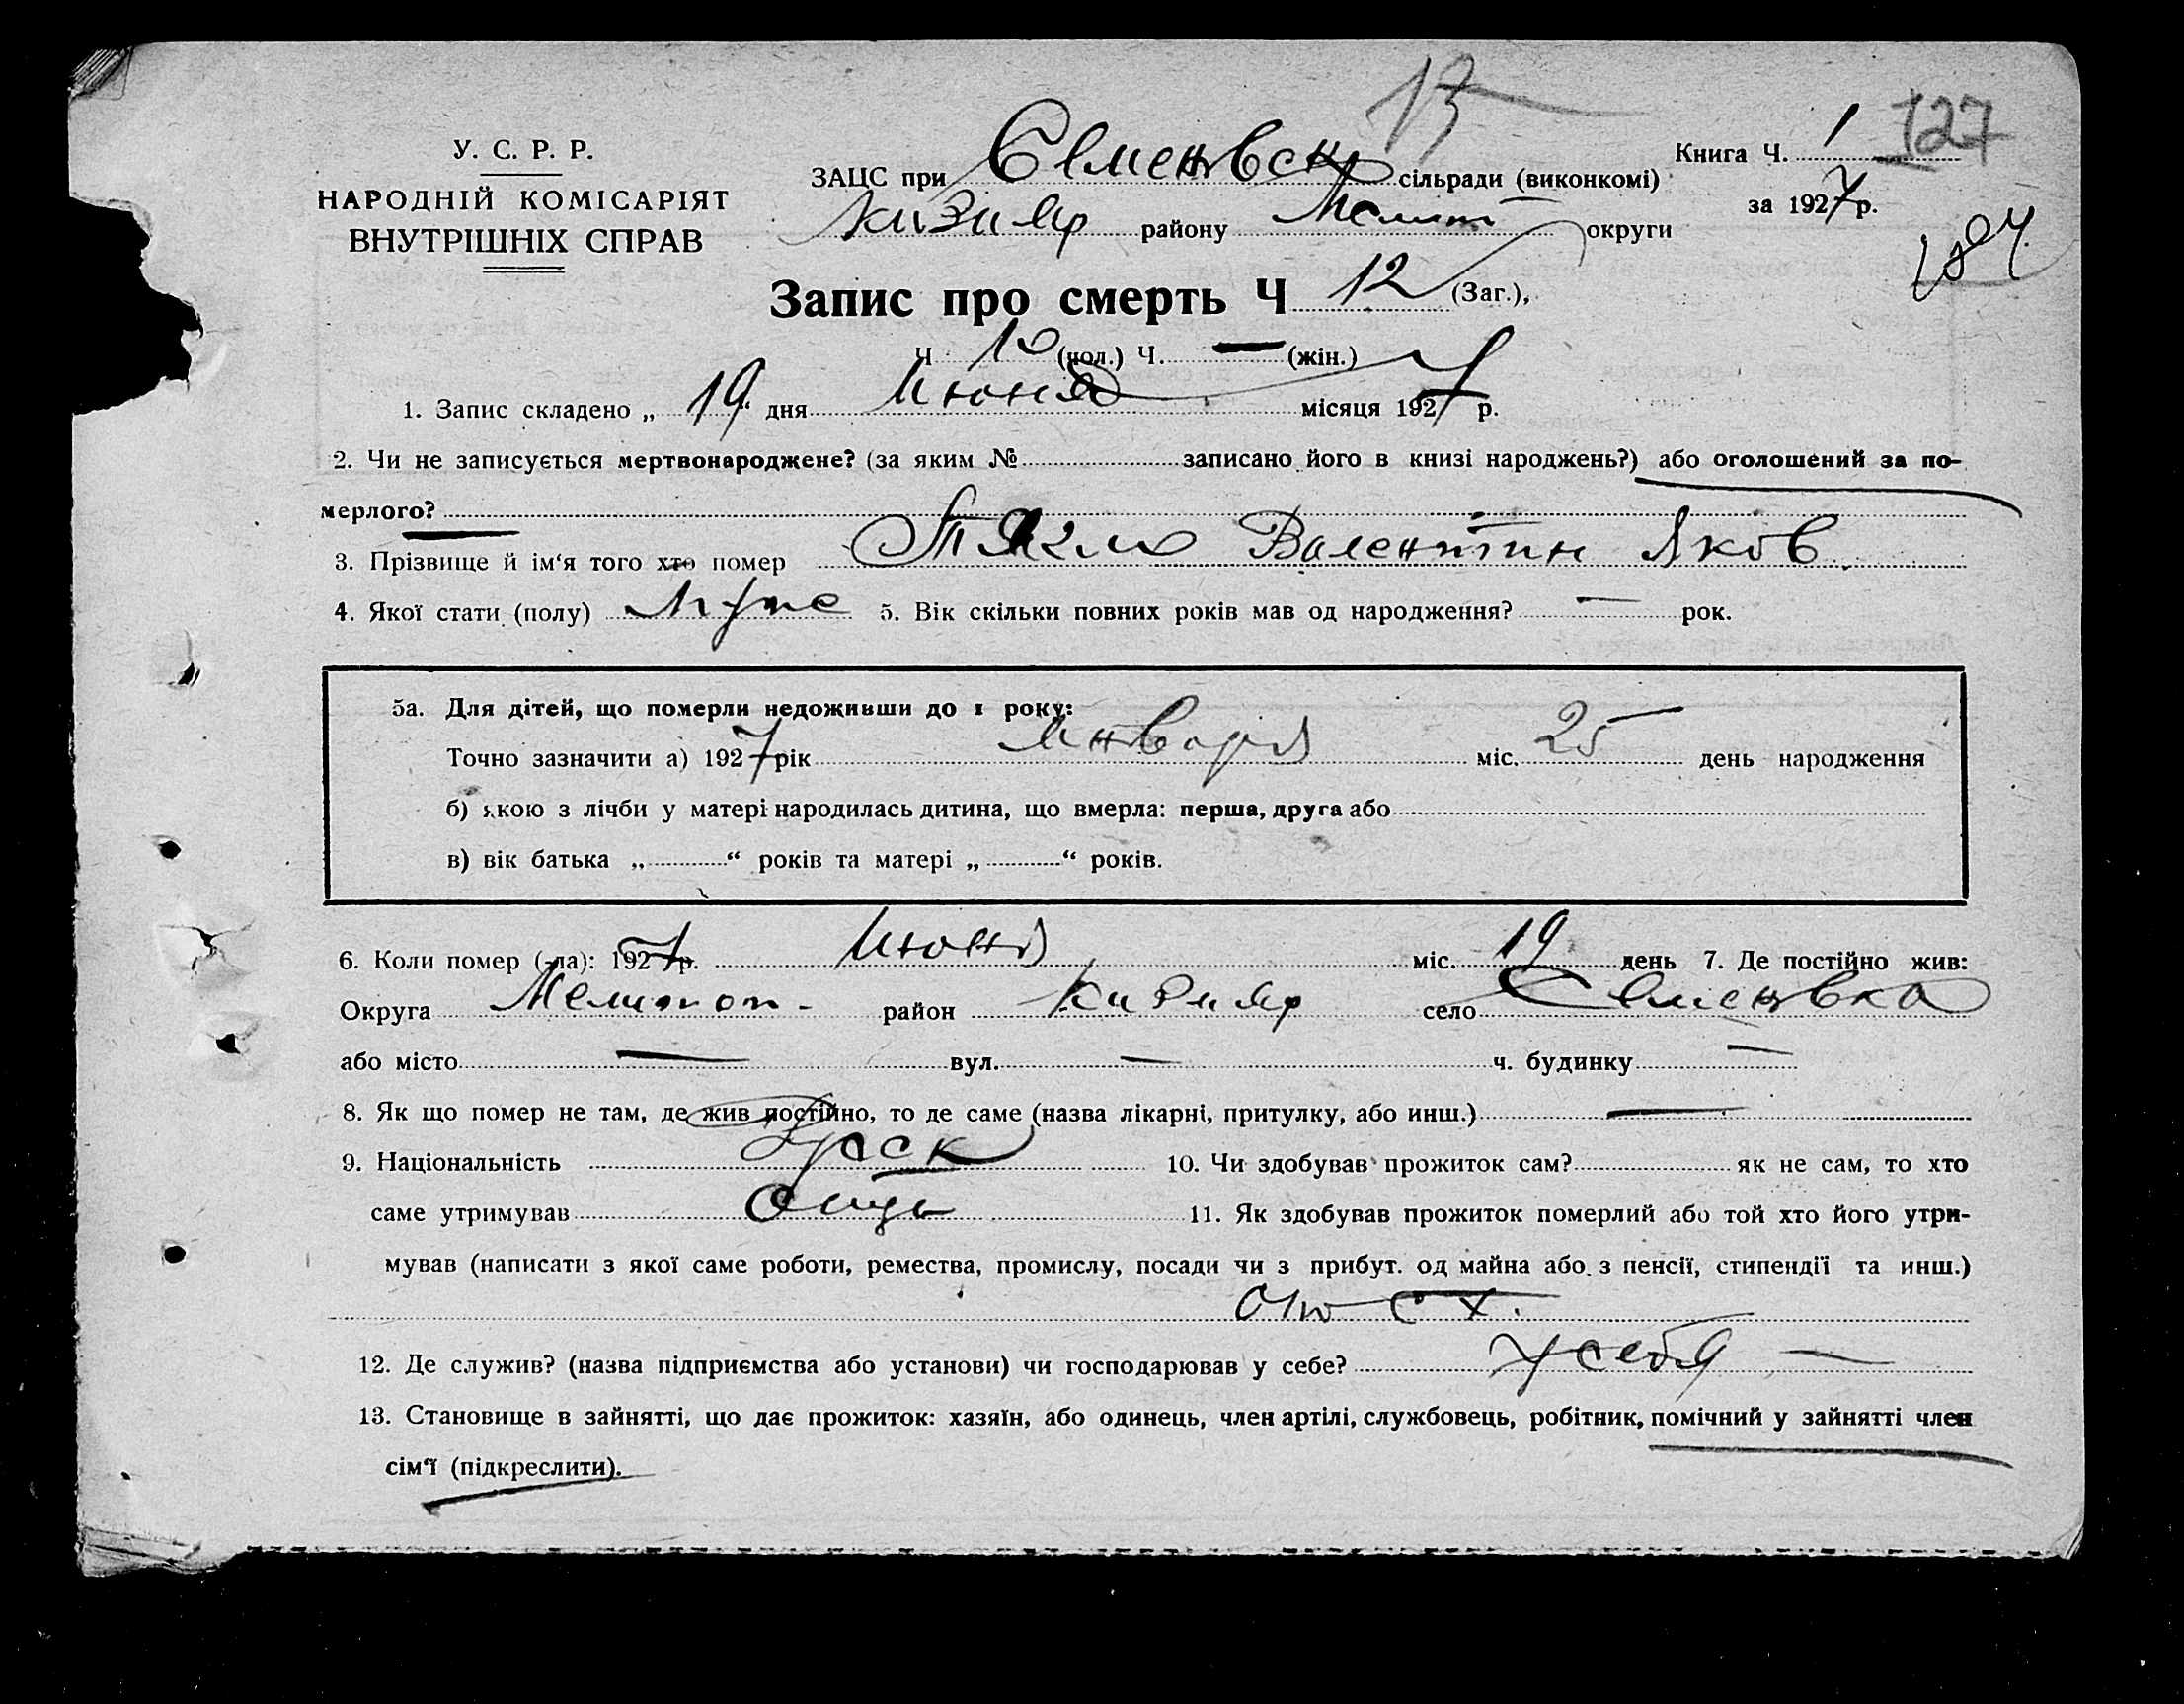 У. С. Р. Р.
НАРОДНІЙ КОМІСАРІЯТ
ВНУТРІШНІХ СПРАВ
ЗАЦС при Семеновск сільради (виконкомі)
Кизияр району Мелит округи
Книга Ч. 1 127
за 1927 р.
Запис про смерть Ч 12 (Заг.),
Ч 10 (чол.) Ч. — (жін.)
1. Запис складено „ 19 “ дня Июня місяця 1927 р.
2. Чи не записується мертвонароджене? (за яким № записано його в книзі народжень?) або оголошений за по-
мерлого?
3. Прізвище й ім‘я того хто помер Валентин Яков
4. Якої стати (полу) Муже 5. Вік скільки повних років мав од народження? — рок.
5а. Для дітей, що померли недоживши до 1 року:
Точно зазначити а) 1927 рік Января міс. 25 день народження
б) якою з лічби у матері народилась дитина, що вмерла: перша, друга або
в) вік батька „ “ років та матері „ “ років.
6. Коли помер (-ла): 1927 р. Июня міс. 19 день 7. Де постійно жив:
Округа Мелитоп. район Кизияр село Семеновка
або місто — вул. — ч. будинку —
8. Як що помер не там, де жив постійно, то де саме (назва лікарні, притулку, або инш.) —
9. Національність Русск 10. Чи здобував прожиток сам? як не сам, то хто
саме утримував Отец 11. Як здобував прожиток померлий або той хто його утри-
мував (написати з якої саме роботи, ремества, промислу, посади чи з прибут. од майна або з пенсії, стипендії та инш.)
От с х.
12. Де служив? (назва підприємства або установи) чи господарював у себе? у себя —
13. Становище в зайнятті, що дає прожиток: хазяїн, або одинець, член артілі, службовець, робітник, помічний у зайнятті член
сім‘ї (підкреслити).